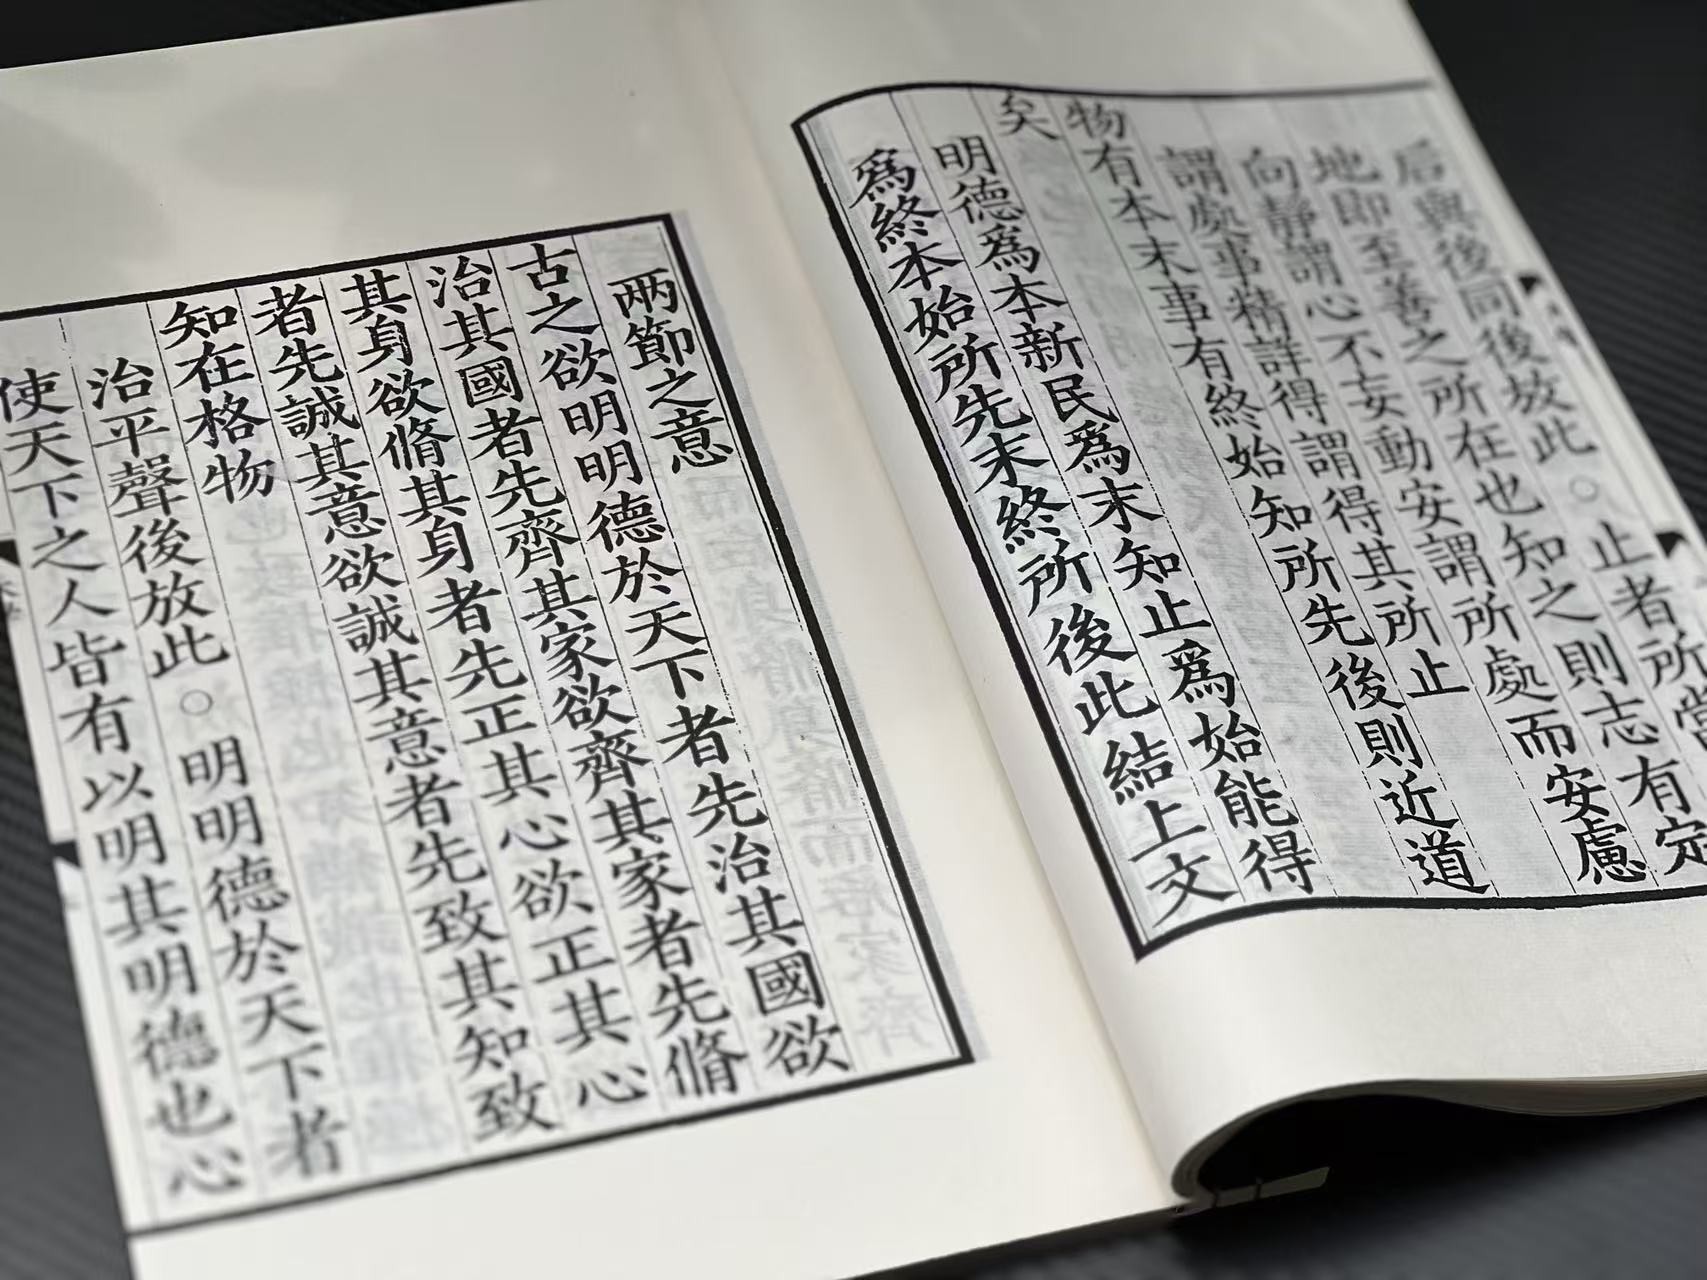 后與後同後放此○止者所當
地即至善之所在也知之則志有定
向靜謂心不妄動安謂所處而安慮
謂處事精詳得謂得其所止
物有本末事有終始知所先後則近道
矣
明德爲本新民爲末知止爲始能得
爲終本始所先末終所後此結上文
两節之意
古之欲明明德於天下者先治其國欲
治其國者先齊其家欲齊其家者先脩
其身欲脩其身者先正其心欲正其心
者先誠其意欲誠其意者先致其知致
知在格物
治平聲後放此○明明德於天下者
使天下之人皆有以明其明德也心